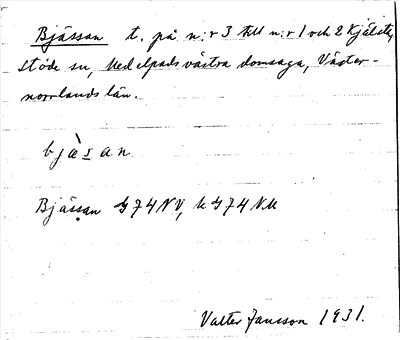 Bjässan t. på n:r 3 till n:r 1 och 2 Kjälsta,
Stöde sn, Medelpads västra domsaga, Väster-
norrlands län.
bjàsan
Bjässan G74NV, k G74NV
Valter Jansson 1931.